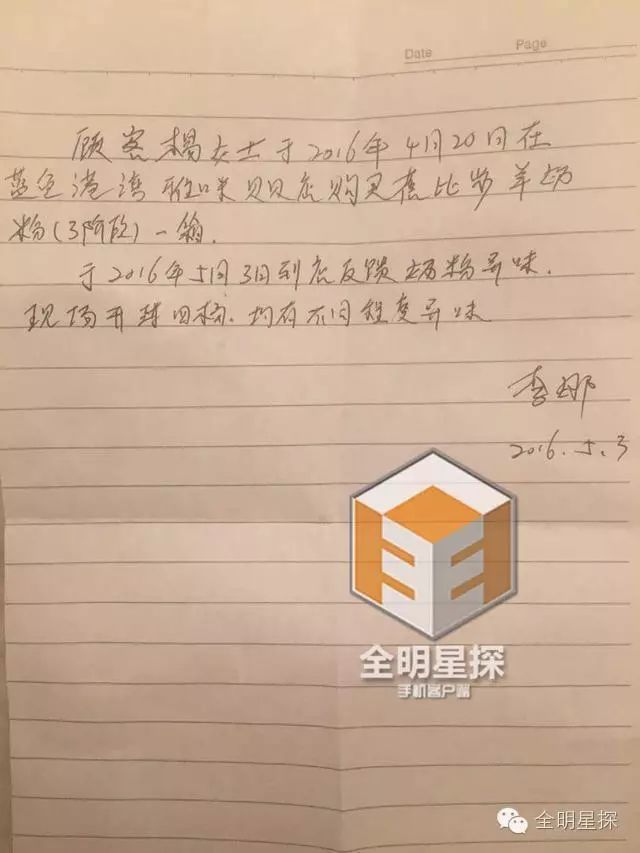 Date Page
顾客杨女士于2016年4月20日在
蓝色港湾雅咪贝贝店购买蕉比步羊奶
粉(3阶段)一箱.
于2016年5月3日到店反馈奶粉异味.
现场开球四桶.均有不同程度异味
李娜
2016.5.3
全明星探
手机客户端
全明星探